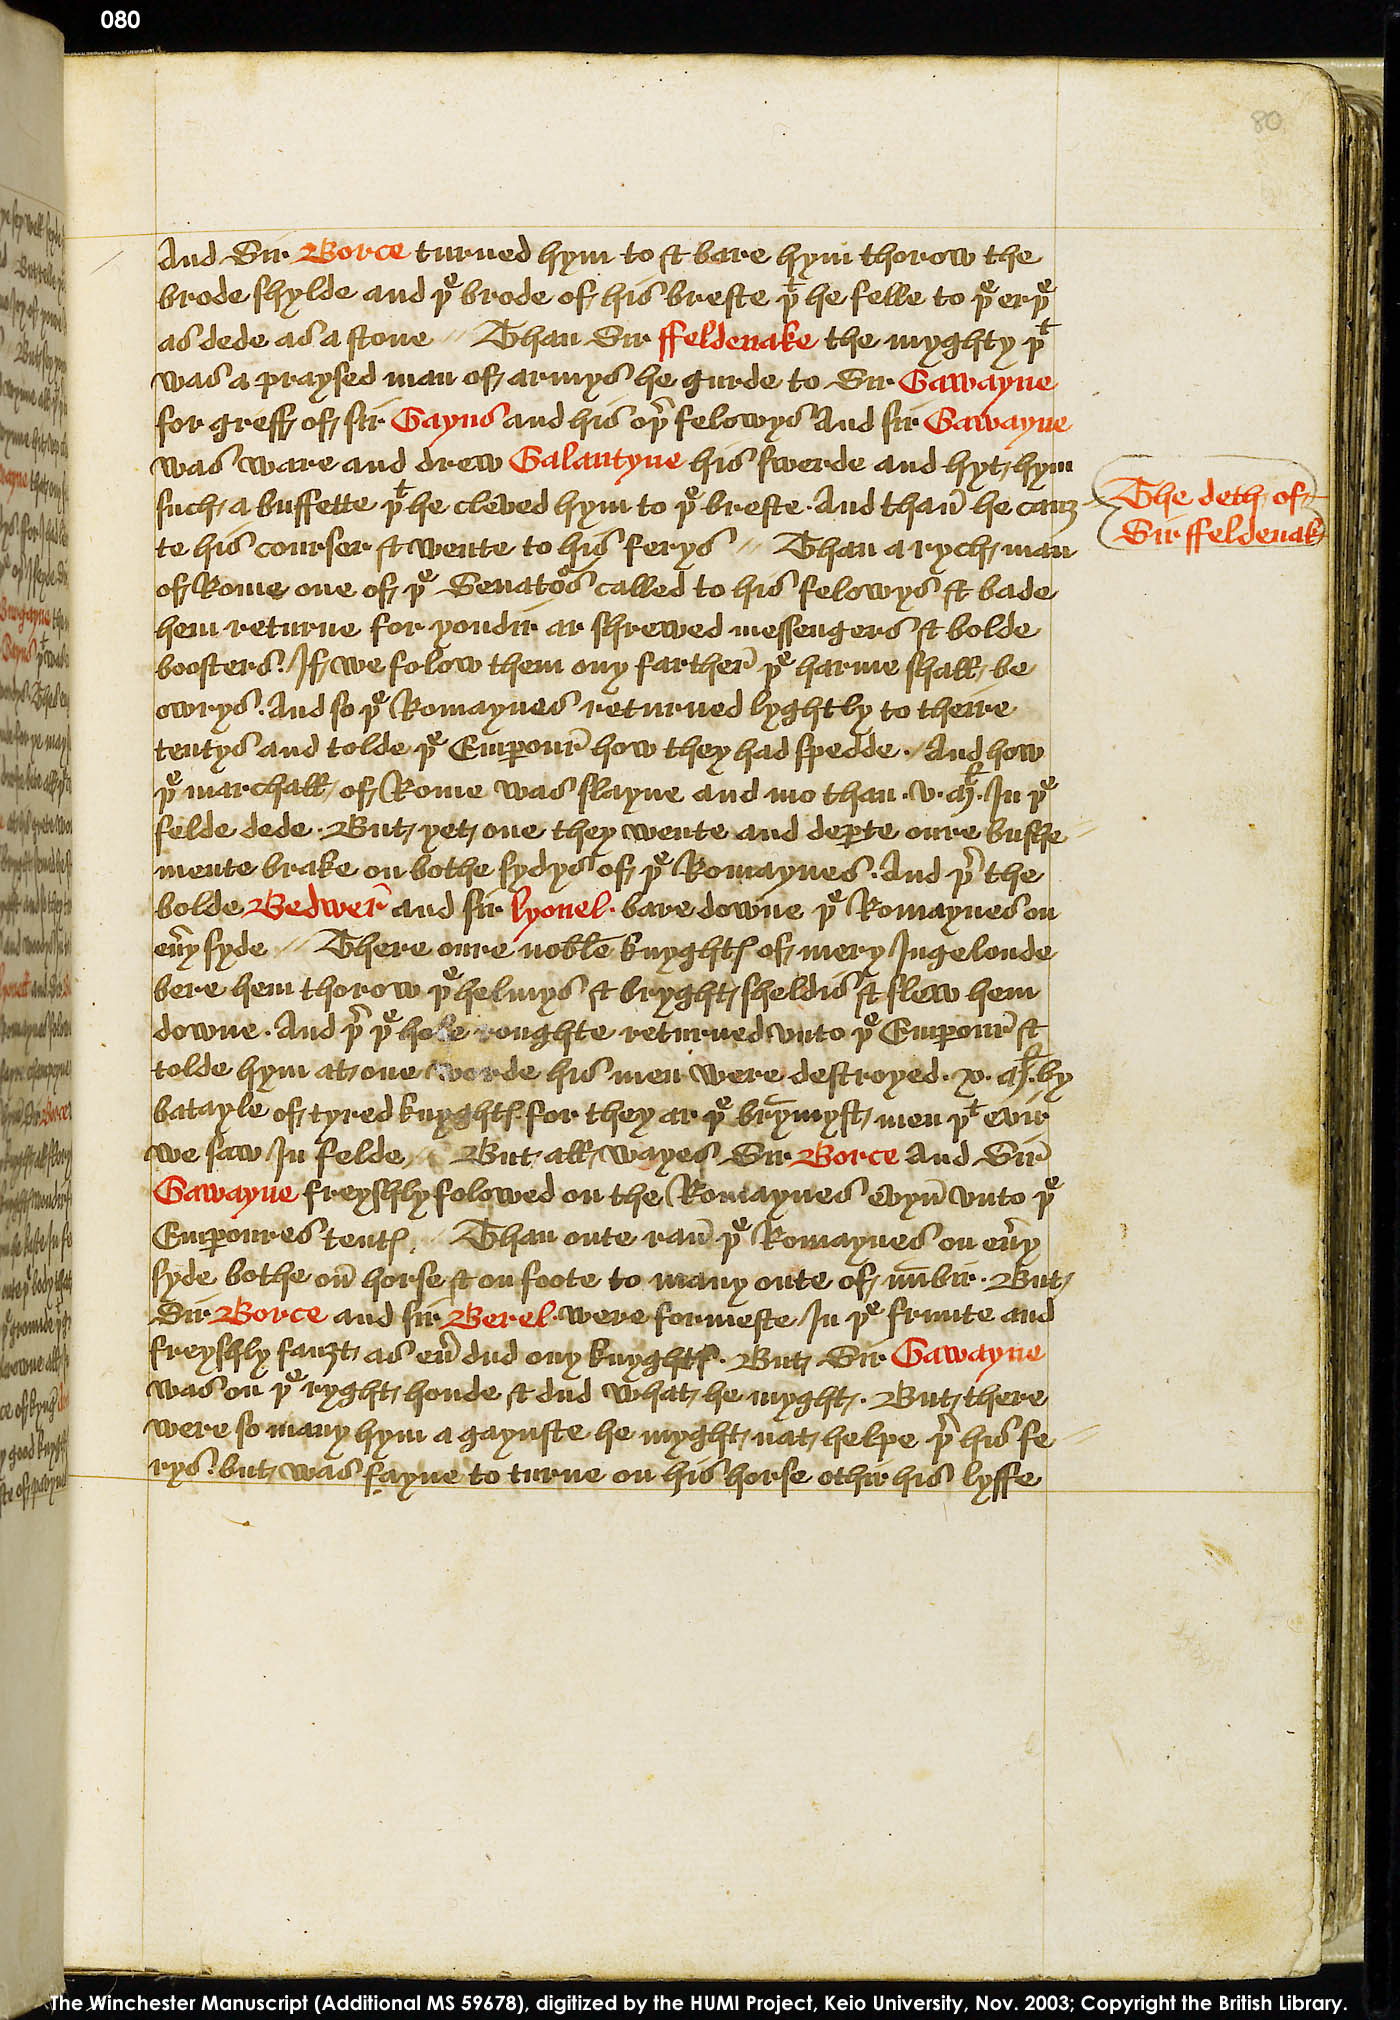 080
80
And Sir Borce turned hym to & bare hym thorow the
brode shylde and þe brode of his breste þt he felle to þe erþe
as dede as a stone // Than Sir ffeldenake the myghty þt
was a praysed man of armys he gurde to Sir Gawayne
for greff of sir Gayus and his oþr felowys And sir Gawayne
was ware and drew Galantyne his swerde and hyt hym
such a buffette þt he cleved hym to þe breste · And than he cauȝ
te his courser & wente to his ferys // Than a rych man
of Rome one of þe Senators called to his felowys & bade
hem returne for yondir ar shrewed messengers & bolde
boosters · If we folow them ony farther þe harme shall be
owrys · And so þe Romaynes returned lyghtly to theire
tentys and tolde þe Emperour how they had spedde · And how
þe marchall of Rome was slayne and mo than · v · Ml · In þe
felde dede · But yet one they wente and deperte oure busshe
mente brake on bothe sydys of þe Romaynes · And þr the
bolde Bedwer and sir lyonel · bare downe þe Romaynes on
eury syde // There oure noble knyghtes of mery Ingelonde
bere hem thorow þe helmys & bryght sheldis & slew hem
downe · And þr þe hole roughte returned vnto þe Emperour &
tolde hym at one worde his men were destroyed · x · Ml · by
batayle of tyred knyghtes · for they ar þe brymyst men þt evir
we saw In felde // But all wayes Sir Borce And Sir
Gawayne freyshly folowed on the Romaynes evyn vnto þe
Emperoures tentes // Than oute ran þe Romaynes on eury
syde bothe on horse & on foote to many oute of numbir · But
Sir Borce and sir Berel · were formeste In þe frunte and
freyshly fauȝt as eur dud ony knyghtes · But Sir Gawayne
was on þe ryght honde & dud what he myght · But there
were so many hym a gaynste he myght nat helpe þr his fe
rys · but was fayne to turne on his horse othir his lyffe
The deth of
Sir ffeldenak
The Winchester Manuscript (Additional MS 59678), digitized by the HUMI Project, Keio University, Nov. 2003; Copyright the British Library.